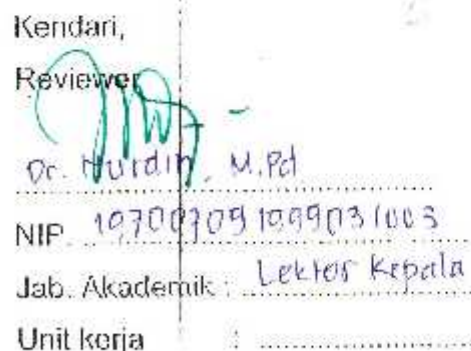 Kendari,
Reviewer
Dr. Nurdin, M.Pd
NIP. 197007091999031003
Jab. Akademik : Lektor Kepala
Unit kerja :